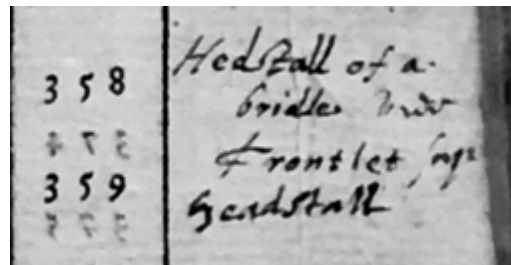 358 Hedstall of a
bridle vide
Frontlet sup
359 Headstall